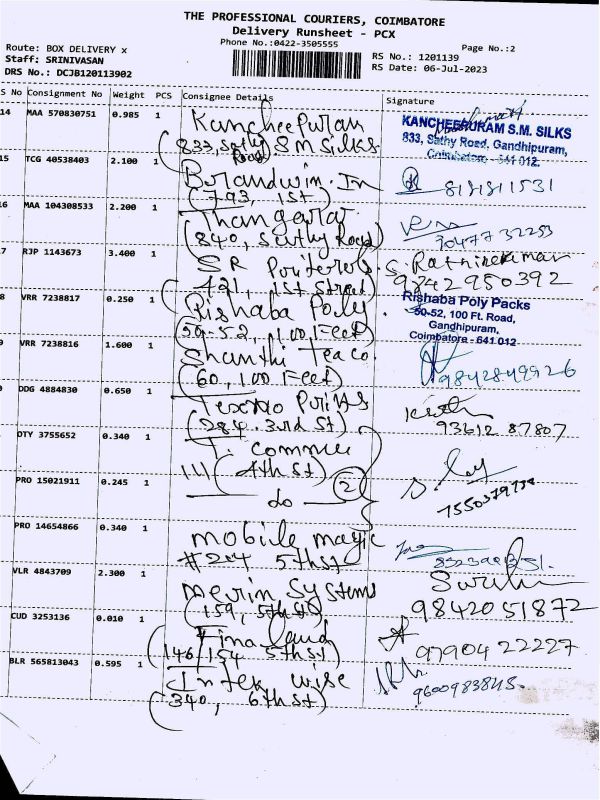 THE PROFESSIONAL COURIERS, COIMBATORE
Delivery Runsheet - PCX
Phone No.:0422-3505555
Page No.:2
Route: BOX DELIVERY x
Staff: SRINIVASAN
DRS No.: DCJB120113902
RS No.: 1201139
RS Date: 06-Jul-2023
S No Consignment No Weight PCS Consignee Details Signature
14 MAA 570830751 0.985 1 Kancheepuran
(833, Sathy Road) S M Silks
KANCHEEPURAM S.M. SILKS
833, Sathy Road, Gandhipuram,
Coimbatore - 641 012.
15 TCG 40538403 2.100 1 Brandwin. In
(793, 1st)
8181811531
16 MAA 104308533 2.200 1 Thangaraj
(840, Sathy Road)
7047732253
7 RJP 1143673 3.400 1 SR
(421, 1st Street)
S. Rathinakumar
9842950392
8 VRR 7238817 0.250 1 Rishaba Poly
(50-52, 100 Feet)
Rishaba Poly Packs
50-52, 100 Ft. Road,
Gandhipuram,
Coimbatore - 641 012
9 VRR 7238816 1.600 1 Shanthi Tea co
(60, 100 Feet)
9842849926
0 DDG 4884830 0.650 1
(284. 3rd St)
93612 87807
DTY 3755652 0.340 1
111 (4th St)
PRO 15021911 0.245 1 do (2)
PRO 14654866 0.340 1 mobile magic
#204 5th st
VLR 4843709 2.300 1 Systems
(159, 5th St)
9842051872
CUD 3253136 0.010 1
(146/154 5th st)
97904 22227
BLR 565813043 0.595 1 Inter wise
(340, 6th st)
9600983845